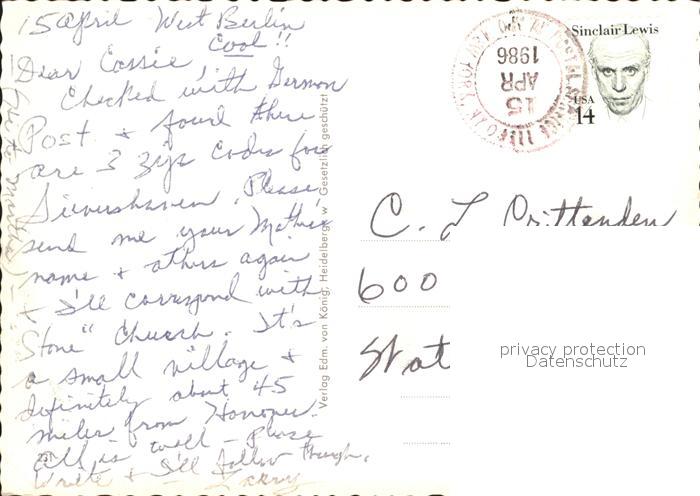 15 April West Berlin
Cool!!
Dear Cassie
Checked with German
Post + found there
are 3 zip codes for
Sievershausen. Please
send me your Mother's
name + others again
+ I'll correspond with
Stone" Church. It's
a small village +
definitely about 45
miles from Hanover.
All is well - please
write + I'll follow through.
Larry
Verlag Edm. von König, Heidelberg Gesetzlich geschützt
APR
15
1986
Sinclair Lewis
USA
14
C. L Crittenden
600
Stat
privacy protection
Datenschutz